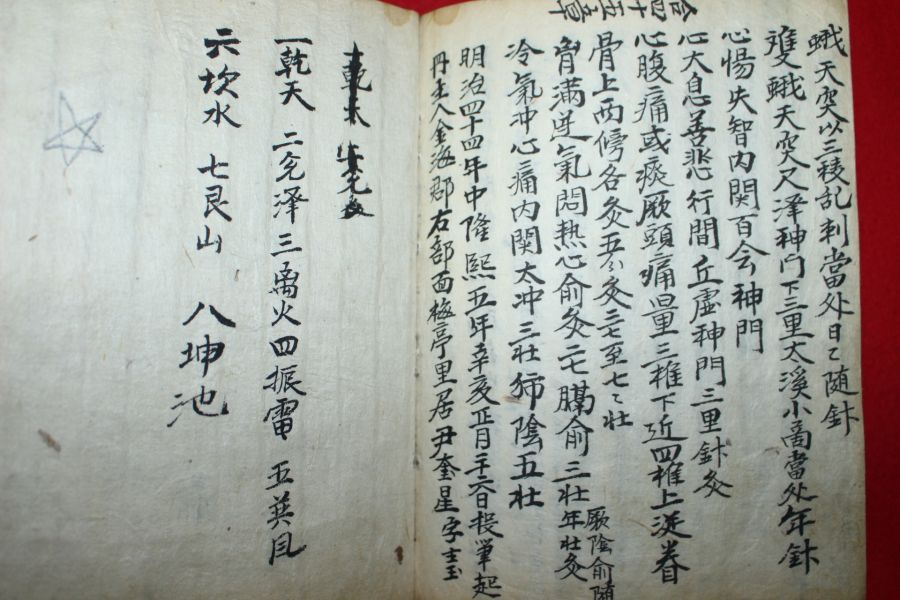 合四十五章
蛾天突以三稜乱刺當处日〻随針
雙蛾天突尺泽神门下三里太溪小商當处年針
心惕失智内関百会神門
心大息善悲行間丘虛神門三里針灸
心腹痛或痰厥頭痛量三椎下近四椎上從眷
骨上两傍各灸五分灸二七至七〻壮
胷满逆氣悶熱心俞灸二七膓俞三壮年壮灸
厥陰俞随
冷氣冲心痛内関太冲三壮 陰五壮
明治四十四年中隆熙五年辛亥正月二十六日投筆起
丹主人金海郡右部面梅亭里居尹奎星字
乾天
一乾天 二兊泽三离火四振雷 五巽风
六坎水 七艮山 八坤池